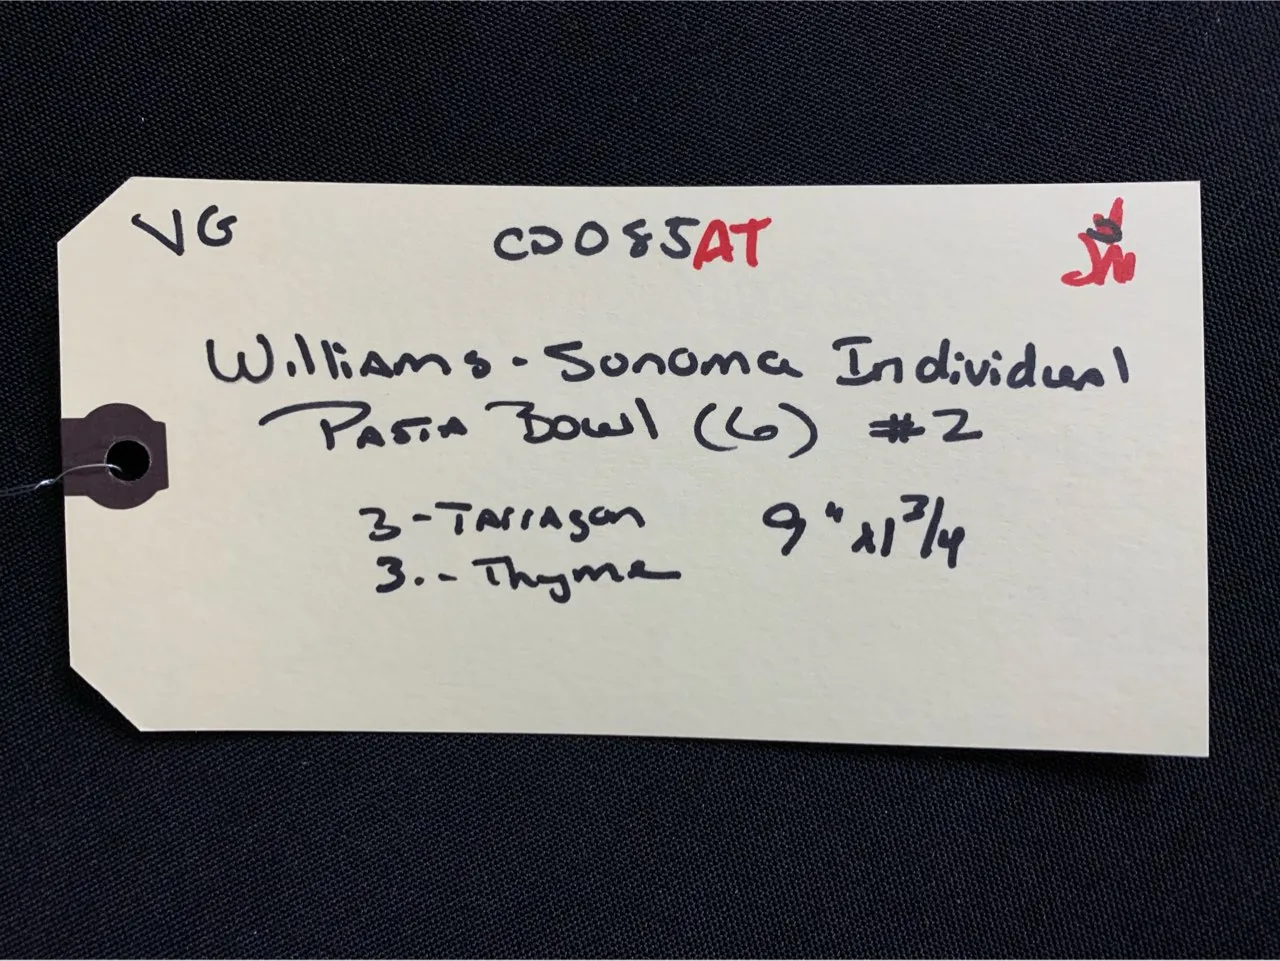 VG CD085AT
Williams-Sonoma Individual
Pasta Bowl (6) #2
3-Tarragon 9" x1 3/4
3.-Thyme